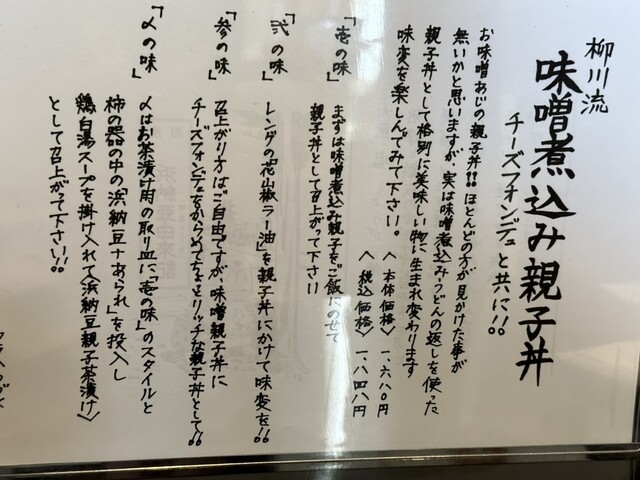 柳川流
味噌煮込み親子丼
チーズフォンデュと共に!!
お味噌あじの親子丼!!ほとんどの方が見かけた事が
無いかと思いますが、実は味噌煮込みうどんの返しを使った
親子丼として格別に美味しい物に生まれ変わります
味変を楽しんでみて下さい。
〈本体価格〉一、六八〇円
〈税込価格〉一、八四八円
「壱の味」
まずは味噌煮込み親子をご飯にのせて
親子丼として召上がって下さい
「弐の味」
レンゲの「花山椒ラー油」を親子丼にかけて味変を!!
「参の味」
召上がり方はご自由ですが、味噌親子丼に
チーズフォンデュをからめてちょとリッチな親子丼として!!
「〆の味」
〆はお茶漬け用の取り皿に「壱の味」のスタイルと
柿の器の中の「浜納豆+あられ」を投入し
鶏白湯スープを掛け入れて〈浜納豆親子茶漬け〉
として召上がって下さい!!